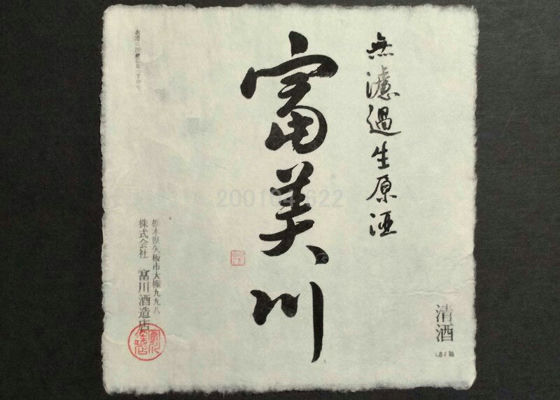 無濾過生原酒
富美川
清酒
栃木県矢板市大槻九九八
株式会社 富川酒造店